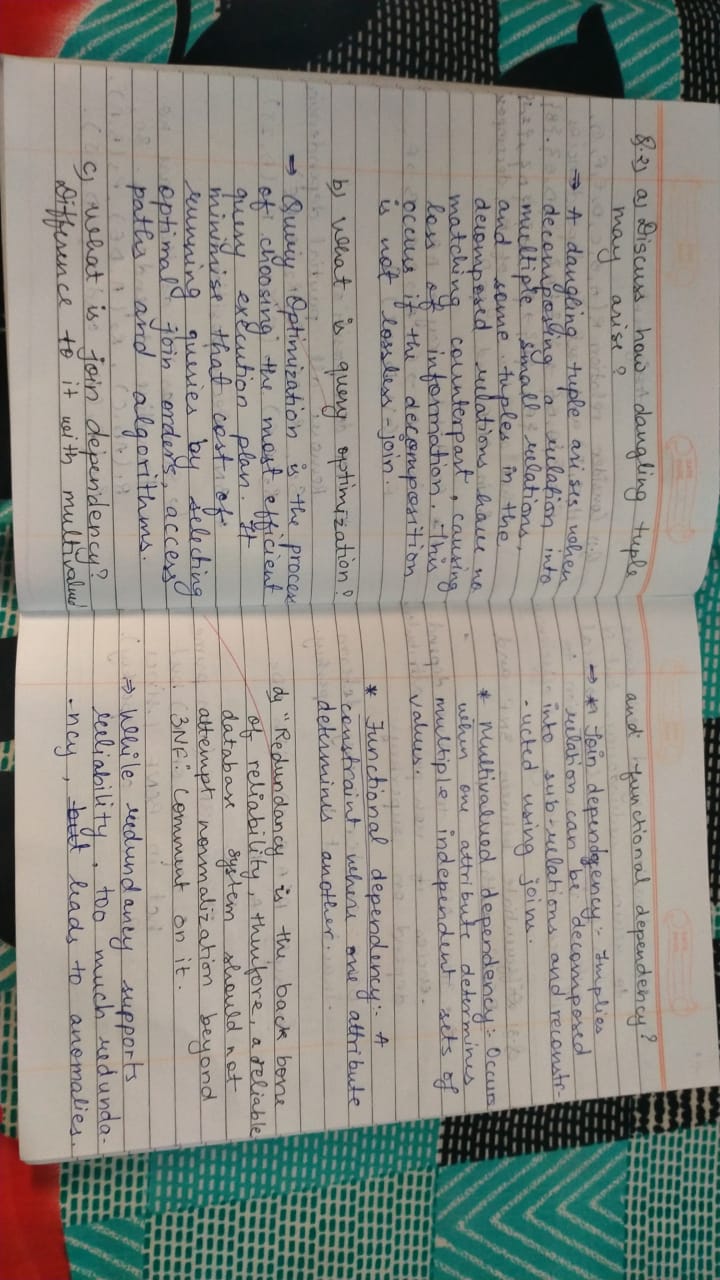 Q.2) a) Discuss how dangling tuple
may arise?
⇒ A dangling tuple arises when
decomposing a relation into
multiple small relations,
and some tuples in the
decomposed relations have no
matching counterpart, causing
loss of information. This
occurs if the decomposition
is not lossless-join.
b) What is query optimization?
→ Query Optimization is the process
of choosing the most efficient
query execution plan. It
minimise that cost of
running queries by selecting
optimal join orders, access
paths and algorithms.
c) What is join dependency?
Difference to it with multivalued
and functional dependency?
⇒ * Join dependency:- Implies
relation can be decomposed
into sub-relations and reconstr-
-ucted using joins.
* Multivalued dependency:- Occurs
when one attribute determines
multiple independent sets of
values.
* Functional dependency:- A
constraint where one attribute
determines another.
d) "Redundancy is the back bone
of reliability, therefore, a reliable
database system should not
attempt normalization beyond
3NF." Comment on it.
⇒ While redundancy supports
reliability, too much redunda-
-ncy, but leads to anomalies.